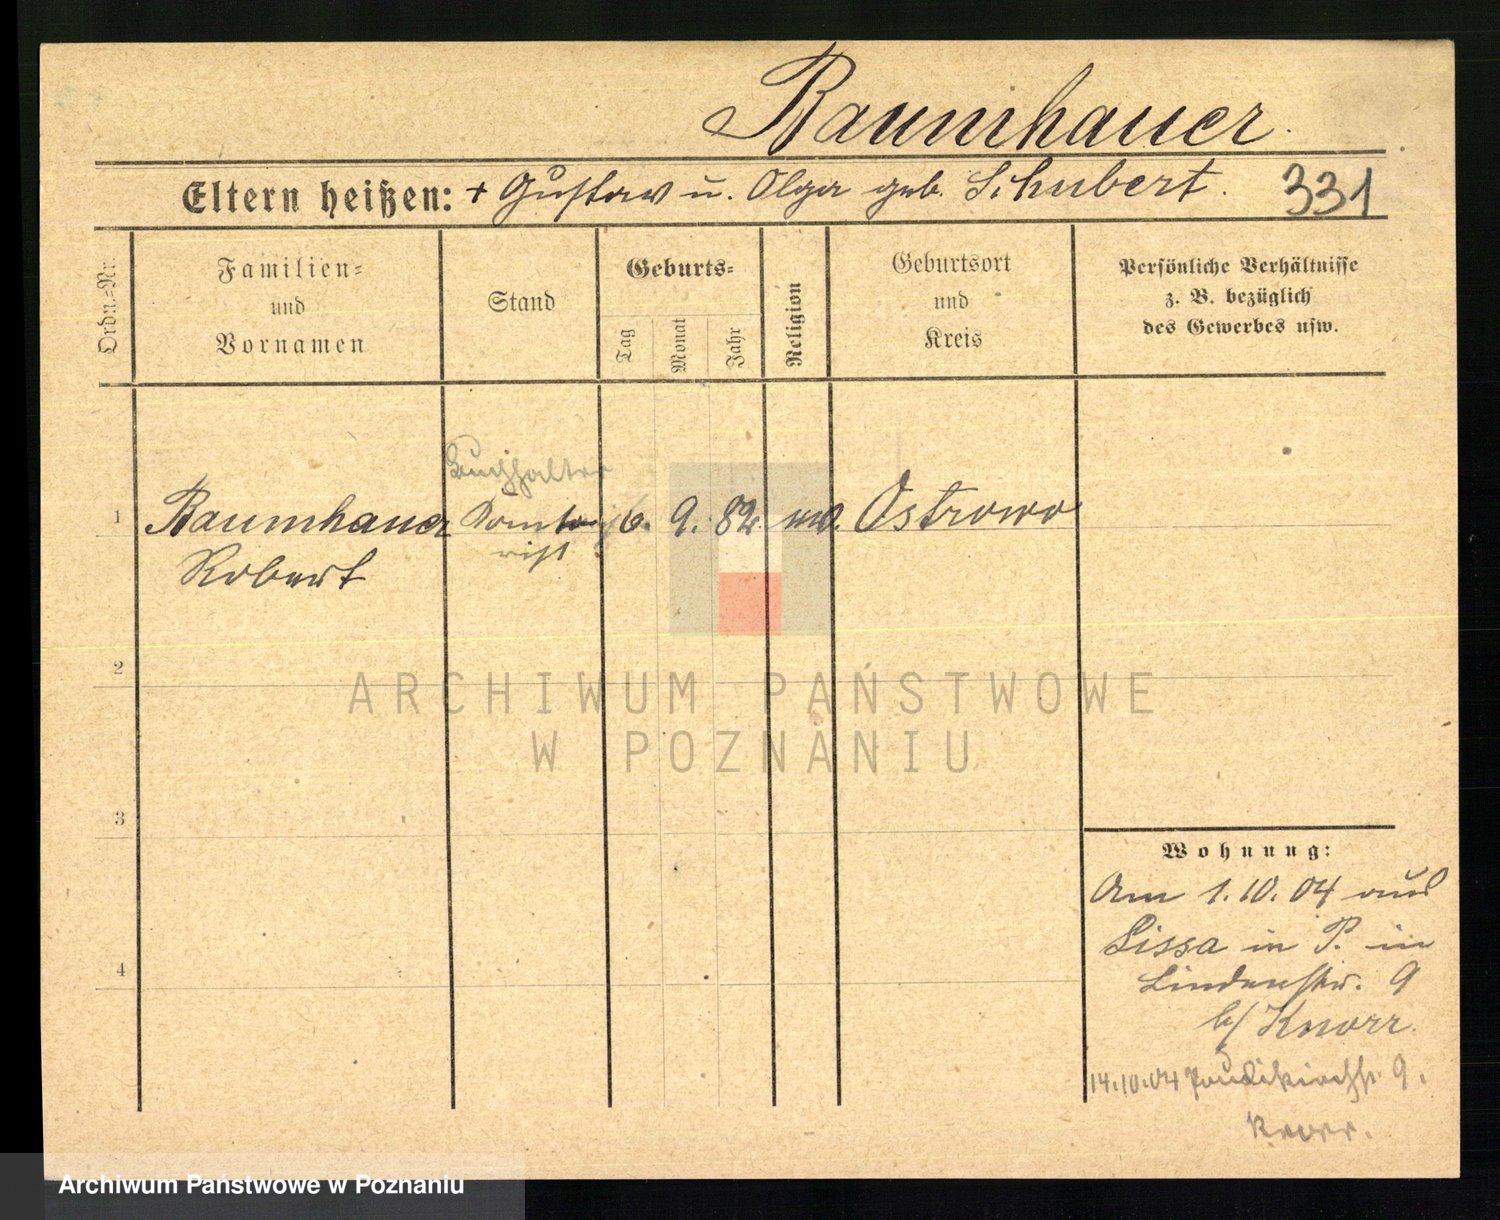 Baumhauer.
Eltern heißen: + Gustav u. Olga geb. Schubert. 331
Ordn.-Nr.
Familien-
und
Vornamen
Stand
Geburts-
Tag
Monat
Jahr
Religion
Geburtsort
und
Kreis
Persönliche Verhältnisse
z. B. bezüglich
des Gewerbes usw.
Buchhalter
1 Baumhauer Komto 6. 9. 82. Ostrowo
Robert rist
2
ARCHIWUM PAŃSTWOWE
W POZNANIU
3
Wohnung:
Am 1.10.04 aus
Lissa in P. in
Lindenstr. 9
b/ Knorr.
4
14.10.04 Paulikirchstr. 9.
Knorr.
Archiwum Państwowe w Poznaniu